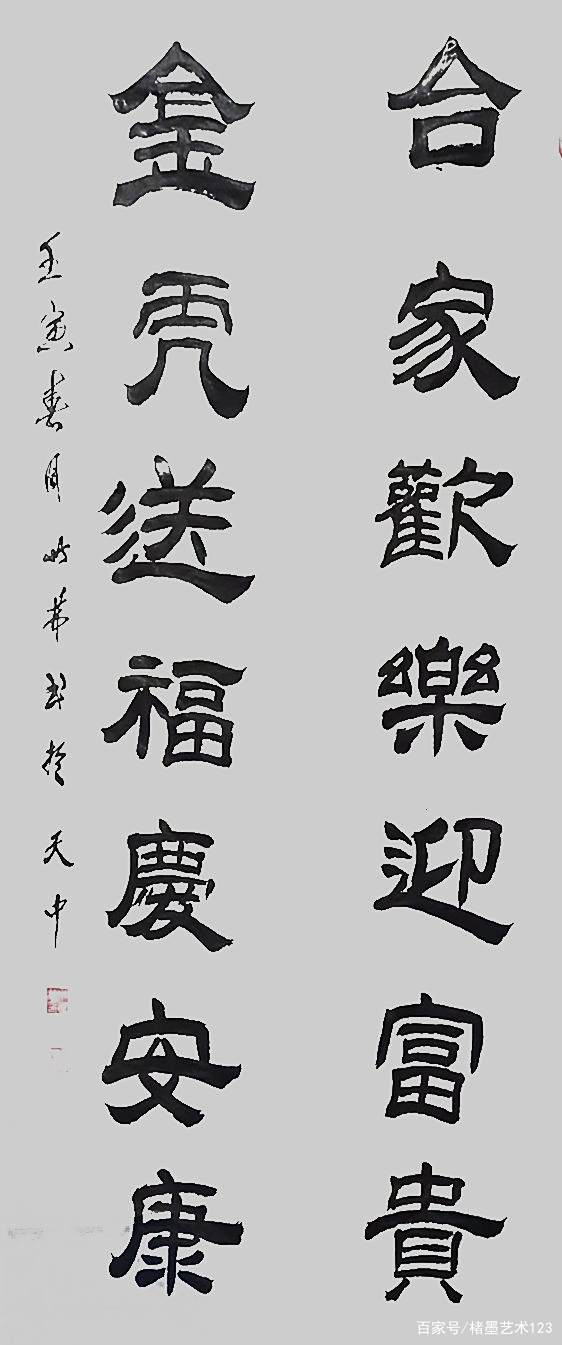 合家歡樂迎富貴
金虎送福慶安康
壬寅春月 書於天中
百家号/楮墨艺术123